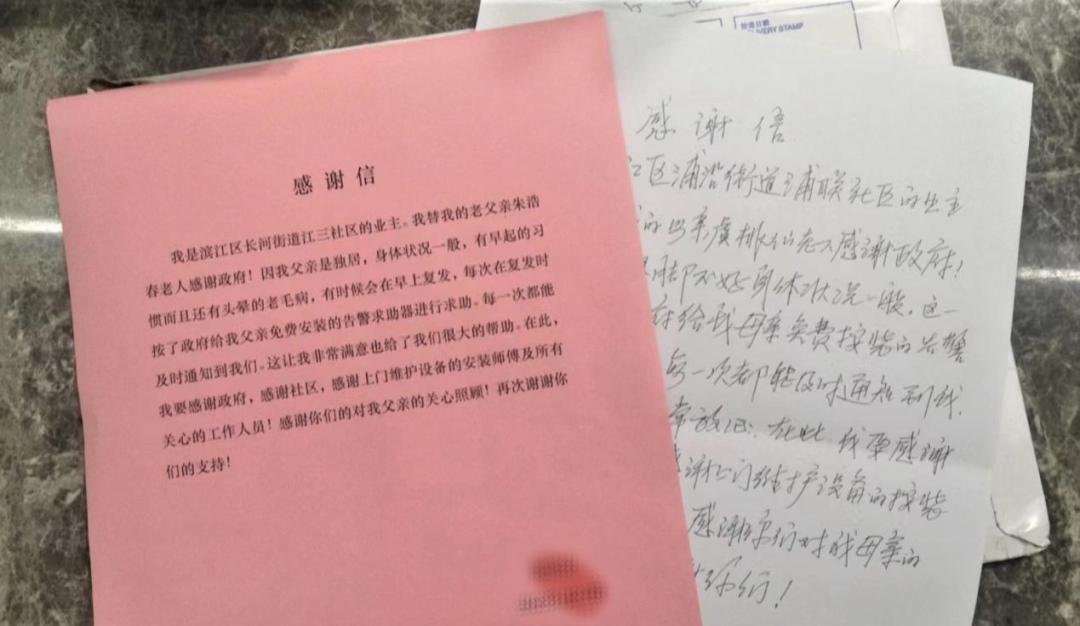 感谢信
我是滨江区长河街道江三社区的业主。我替我的老父亲朱浩
春老人感谢政府！因我父亲是独居，身体状况一般，有早起的习
惯而且还有头晕的老毛病，有时候会在早上复发，每次在复发时
按了政府给我父亲免费安装的告警求助器进行求助。每一次都能
及时通知到我们。这让我非常满意也给了我们很大的帮助。在此，
我要感谢政府，感谢社区，感谢上门维护设备的安装师傅及所有
关心的工作人员！感谢你们的对我父亲的关心照顾！再次谢谢你
们的支持！
DELIVERY STAMP
感谢信
江区浦沿街道浦联社区的业主
老人感谢政府！
不好身体状况一般，这一
给我母亲免费按装的告警
每一次都能及时通知到我，
常放心。在此，我要感谢
感谢上门维护设备的按装
感谢你们对我母亲的
你们！